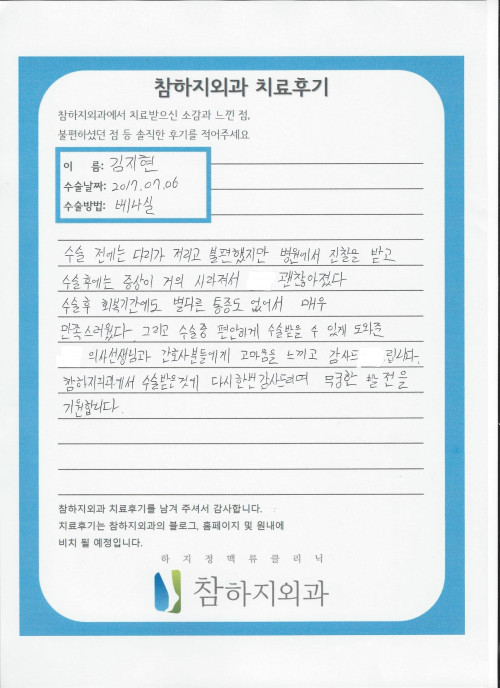 참하지외과 치료후기
참하지외과에서 치료받으신 소감과 느낀 점,
불편하셨던 점 등 솔직한 후기를 적어주세요
이 름: 김지현
수술날짜: 2017.07.06
수술방법: 베나실
수술 전에는 다리가 저리고 불편했지만 병원에서 진찰을 받고
수술후에는 증상이 거의 사라져서 괜찮아졌다
수술후 회복기간에도 별다른 통증도 없어서 매우
만족스러웠다. 그리고 수술중 편안하게 수술받을 수 있게 도와준
의사선생님과 간호사분들에게 고마움을 느끼고 감사드 립니다.
참하지외과에서 수술받은것에 다시한번감사드리며 무궁한 발전을
기원합니다.
참하지외과 치료후기를 남겨 주셔서 감사합니다.
치료후기는 참하지외과의 블로그, 홈페이지 및 원내에
비치 될 예정입니다.
하지정맥류클리닉
참하지외과